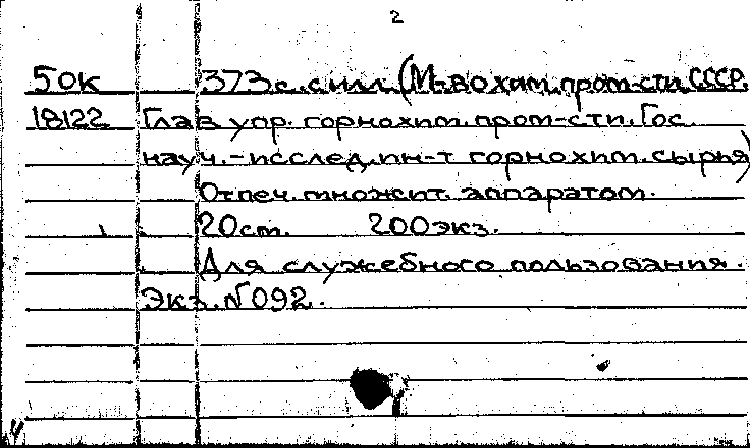 2
50к 373с. с илл. (М-во хим. пром-сти СССР.
18122 Глав. упр. горнохим. пром-сти. Гос.
науч.-исслед. ин-т горнохим. сырья)
Отпеч. множит. аппаратом.
20 см. 200 экз.
Для служебного пользования.
Экз. № 092.